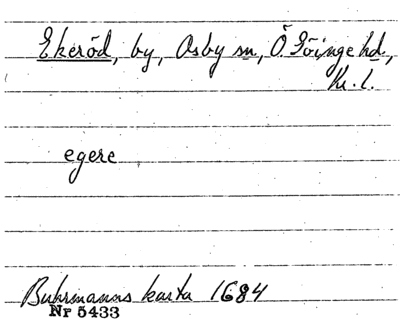 Ekeröd, by, Osby sn, Ö. Göinge hd,
Kr. l.
egere
Buhrmanns karta 1684
Nr 5433